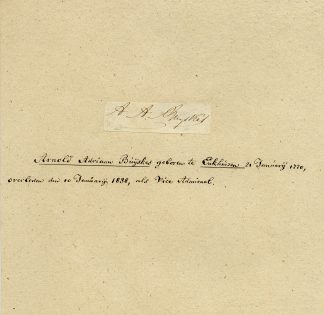 A A Buyskes
Arnold Adriaan Buÿskes geboren te Enkhuizen 21 Januarÿ 1770,
overleden den 10 Januarÿ 1838, als Vice Admiraal.